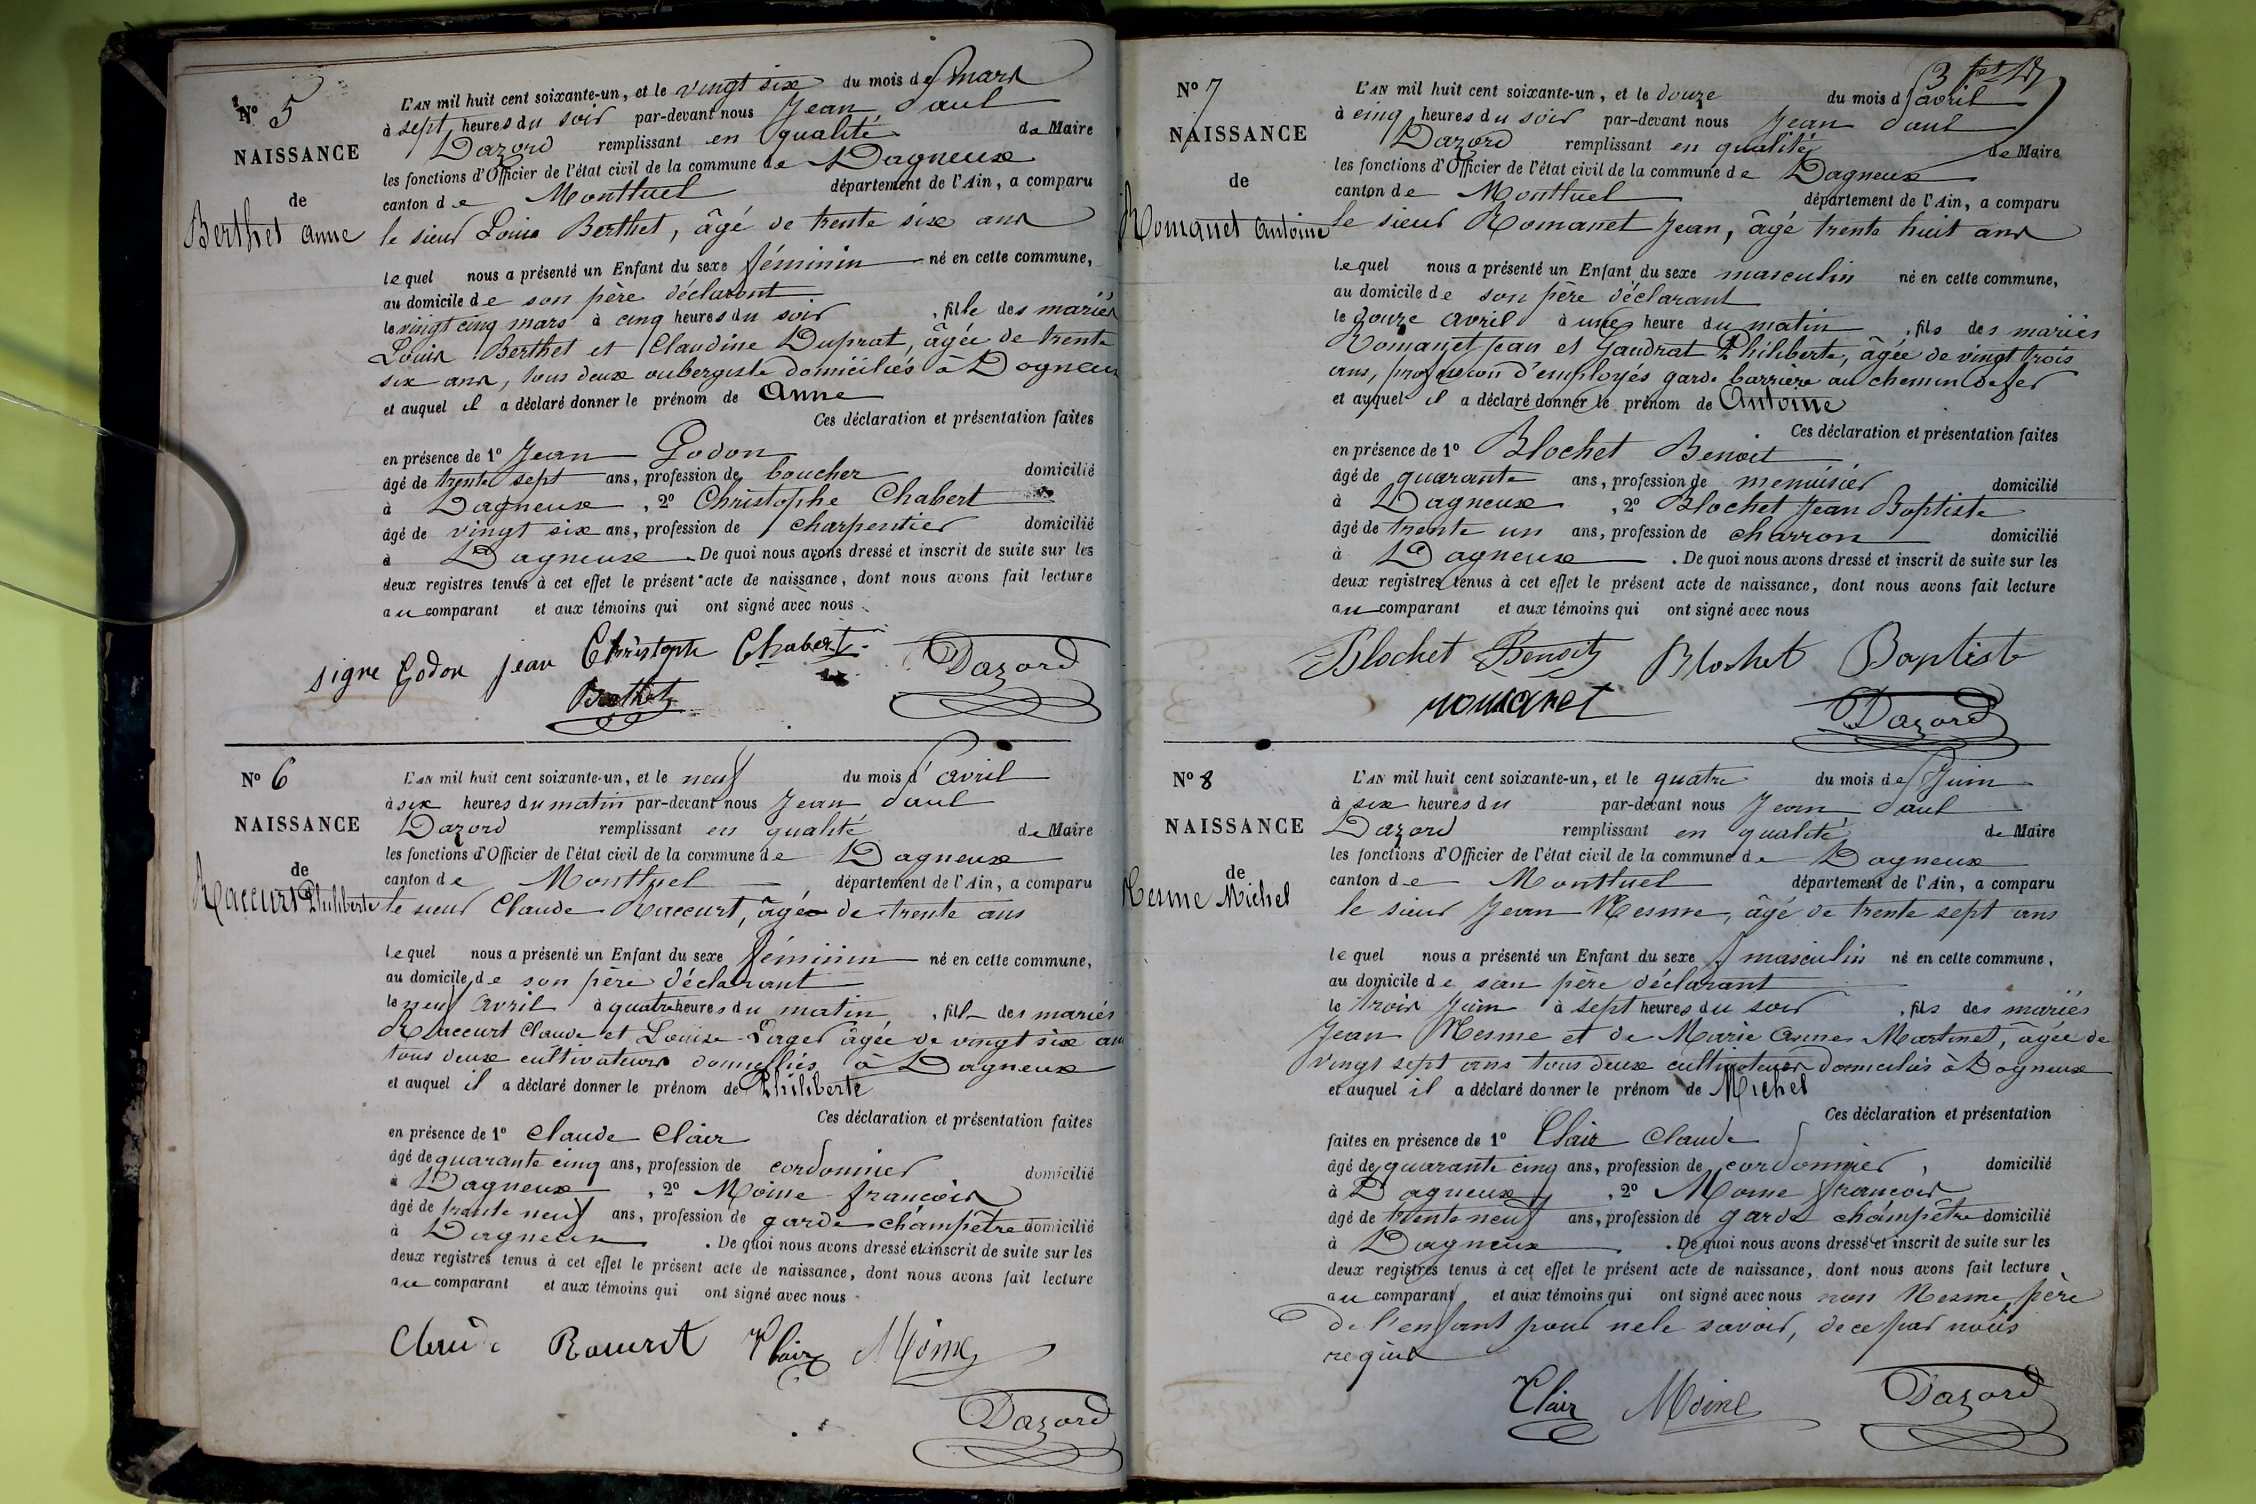 N° 5
NAISSANCE
de
Berthet Anne
L'AN mil huit cent soixante-un, et le vingt six du mois de mars
à sept heures du soir par-devant nous Jean Paul
Dazord remplissant en qualité de Maire
les fonctions d'Officier de l'état civil de la commune de Dagneux
canton de Montluel département de l'Ain, a comparu
le sieur Louis Berthet, âgé de trente six ans
lequel nous a présenté un Enfant du sexe féminin né en cette commune,
au domicile de son père déclarant
le vingt cinq mars à cinq heures du soir, fille des mariés
Louis Berthet et Claudine Duprat, âgée de trente
six ans, tous deux aubergiste domiciliés à Dagneux
et auquel il a déclaré donner le prénom de Anne
Ces déclaration et présentation faites
en présence de 1° Jean Godon
âgé de trente sept ans, profession de boucher domicilié
à Dagneux, 2° Christophe Chabert
âgé de vingt six ans, profession de charpentier domicilié
à Dagneux. De quoi nous avons dressé et inscrit de suite sur les
deux registres tenus à cet effet le présent acte de naissance, dont nous avons fait lecture
au comparant et aux témoins qui ont signé avec nous.
signe Godon jean Christophe Chabert Dazord
Berthet
N° 6
NAISSANCE
de
Raccurt Philiberte
L'AN mil huit cent soixante-un, et le neuf du mois d'avril
à six heures du matin par-devant nous Jean Paul
Dazord remplissant en qualité de Maire
les fonctions d'Officier de l'état civil de la commune de Dagneux
canton de Montluel département de l'Ain, a comparu
le sieur Claude Raccurt, âgé de trente ans
lequel nous a présenté un Enfant du sexe féminin né en cette commune,
au domicile de son père déclarant
le neuf avril à quatre heures du matin, fille des mariés
Raccurt Claude et Louise Lager âgée de vingt six ans
tous deux cultivateurs domiciliés à Dagneux
et auquel il a déclaré donner le prénom de Philiberte
Ces déclaration et présentation faites
en présence de 1° Claude Clair
âgé de quarante cinq ans, profession de cordonnier domicilié
à Dagneux, 2° Moine françois
âgé de trente neuf ans, profession de garde champêtre domicilié
à Dagneux. De quoi nous avons dressé et inscrit de suite sur les
deux registres tenus à cet effet le présent acte de naissance, dont nous avons fait lecture
au comparant et aux témoins qui ont signé avec nous
Claude Clair Moine
Dazord
N° 7
NAISSANCE
de
Romanet Antoine
L'AN mil huit cent soixante-un, et le douze du mois d'avril
à cinq heures du soir par-devant nous Jean Paul
Dazord remplissant en qualité de Maire
les fonctions d'Officier de l'état civil de la commune de Dagneux
canton de Montluel département de l'Ain, a comparu
le sieur Romanet Jean, âgé trente huit ans
lequel nous a présenté un Enfant du sexe masculin né en cette commune,
au domicile de son père déclarant
le douze avril à une heure du matin, fils des mariés
Romanet Jean et Gaudrat Philiberte, âgée de vingt trois
ans, profession d'employés garde barrière au chemin de fer
et auquel il a déclaré donner le prénom de Antoine
Ces déclaration et présentation faites
en présence de 1° Blochet Benoit
âgé de quarante ans, profession de menuisier domicilié
à Dagneux, 2° Blochet Jean Baptiste
âgé de trente un ans, profession de charron domicilié
à Dagneux. De quoi nous avons dressé et inscrit de suite sur les
deux registres tenus à cet effet le présent acte de naissance, dont nous avons fait lecture
au comparant et aux témoins qui ont signé avec nous
Blochet Benoit Blochet Baptiste
romanet Dazord
N° 8
NAISSANCE
de
Mesme Michel
L'AN mil huit cent soixante-un, et le quatre du mois de Juin
à six heures du par-devant nous Jean Paul
Dazord remplissant en qualité de Maire
les fonctions d'Officier de l'état civil de la commune de Dagneux
canton de Montluel département de l'Ain, a comparu
le sieur Jean Mesme, âgé de trente sept ans
lequel nous a présenté un Enfant du sexe masculin né en cette commune,
au domicile de son père déclarant
le trois Juin à sept heures du soir, fils des mariés
Jean Mesme et de Marie Anne Martinet, âgée de
vingt sept ans tous deux cultivateurs domiciliés à Dagneux
et auquel il a déclaré donner le prénom de Michel
Ces déclaration et présentation
faites en présence de 1° Clair Claude
âgé de quarante cinq ans, profession de cordonnier, domicilié
à Dagneux, 2° Moine françois
âgé de trente neuf ans, profession de garde champêtre domicilié
à Dagneux. De quoi nous avons dressé et inscrit de suite sur les
deux registres tenus à cet effet le présent acte de naissance, dont nous avons fait lecture
au comparant et aux témoins qui ont signé avec nous non Mesme père
de l'enfant pour ne le savoir, de ce par nous
requis
Clair Moine Dazord